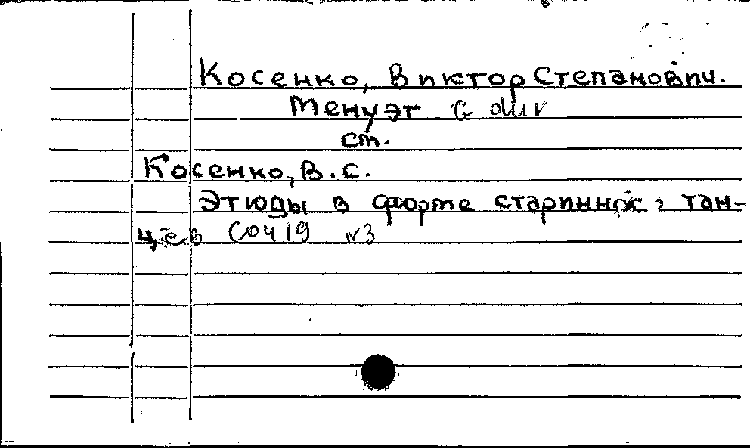 Косенко, Виктор Степанович.
Менуэт G dur
см.
Косенко, В.С.
Этюды в форме старинных тан-
цев соч 19 №3